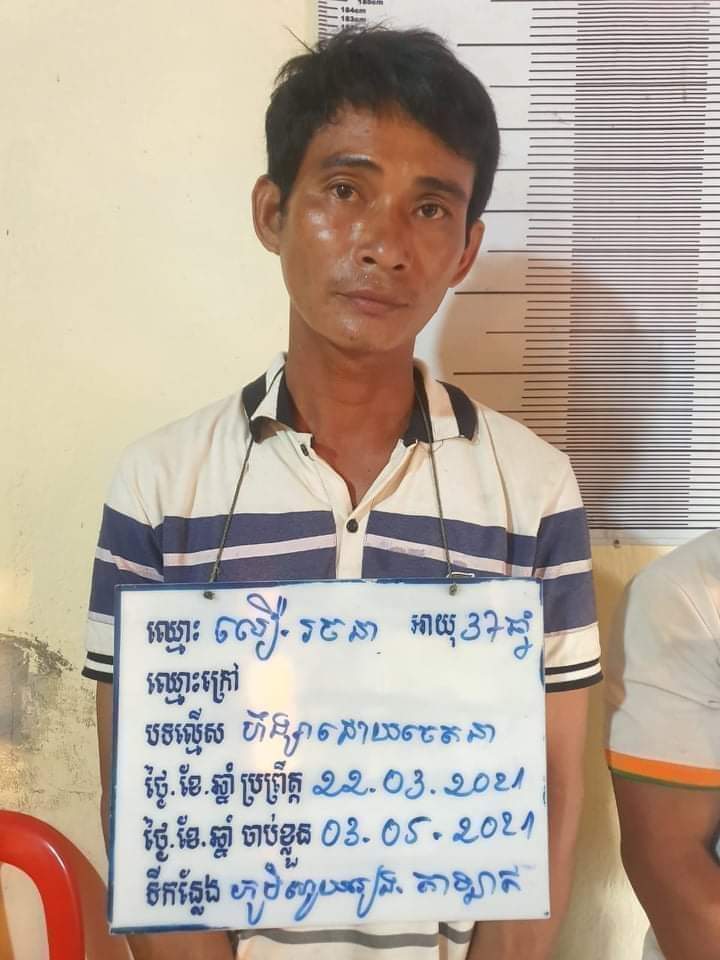 185cm
184cm
183cm
ឈ្មោះ លឿ. រចនា អាយុ 37 ឆ្នាំ
ឈ្មោះក្រៅ
បទល្មើស ហិង្សាដោយចេតនា
ថ្ងៃ.ខែ.ឆ្នាំ ប្រព្រឹត្ត 22.03.2021
ថ្ងៃ.ខែ.ឆ្នាំ ចាប់ខ្លួន 03.05.2021
ទីកន្លែង ភូមិ